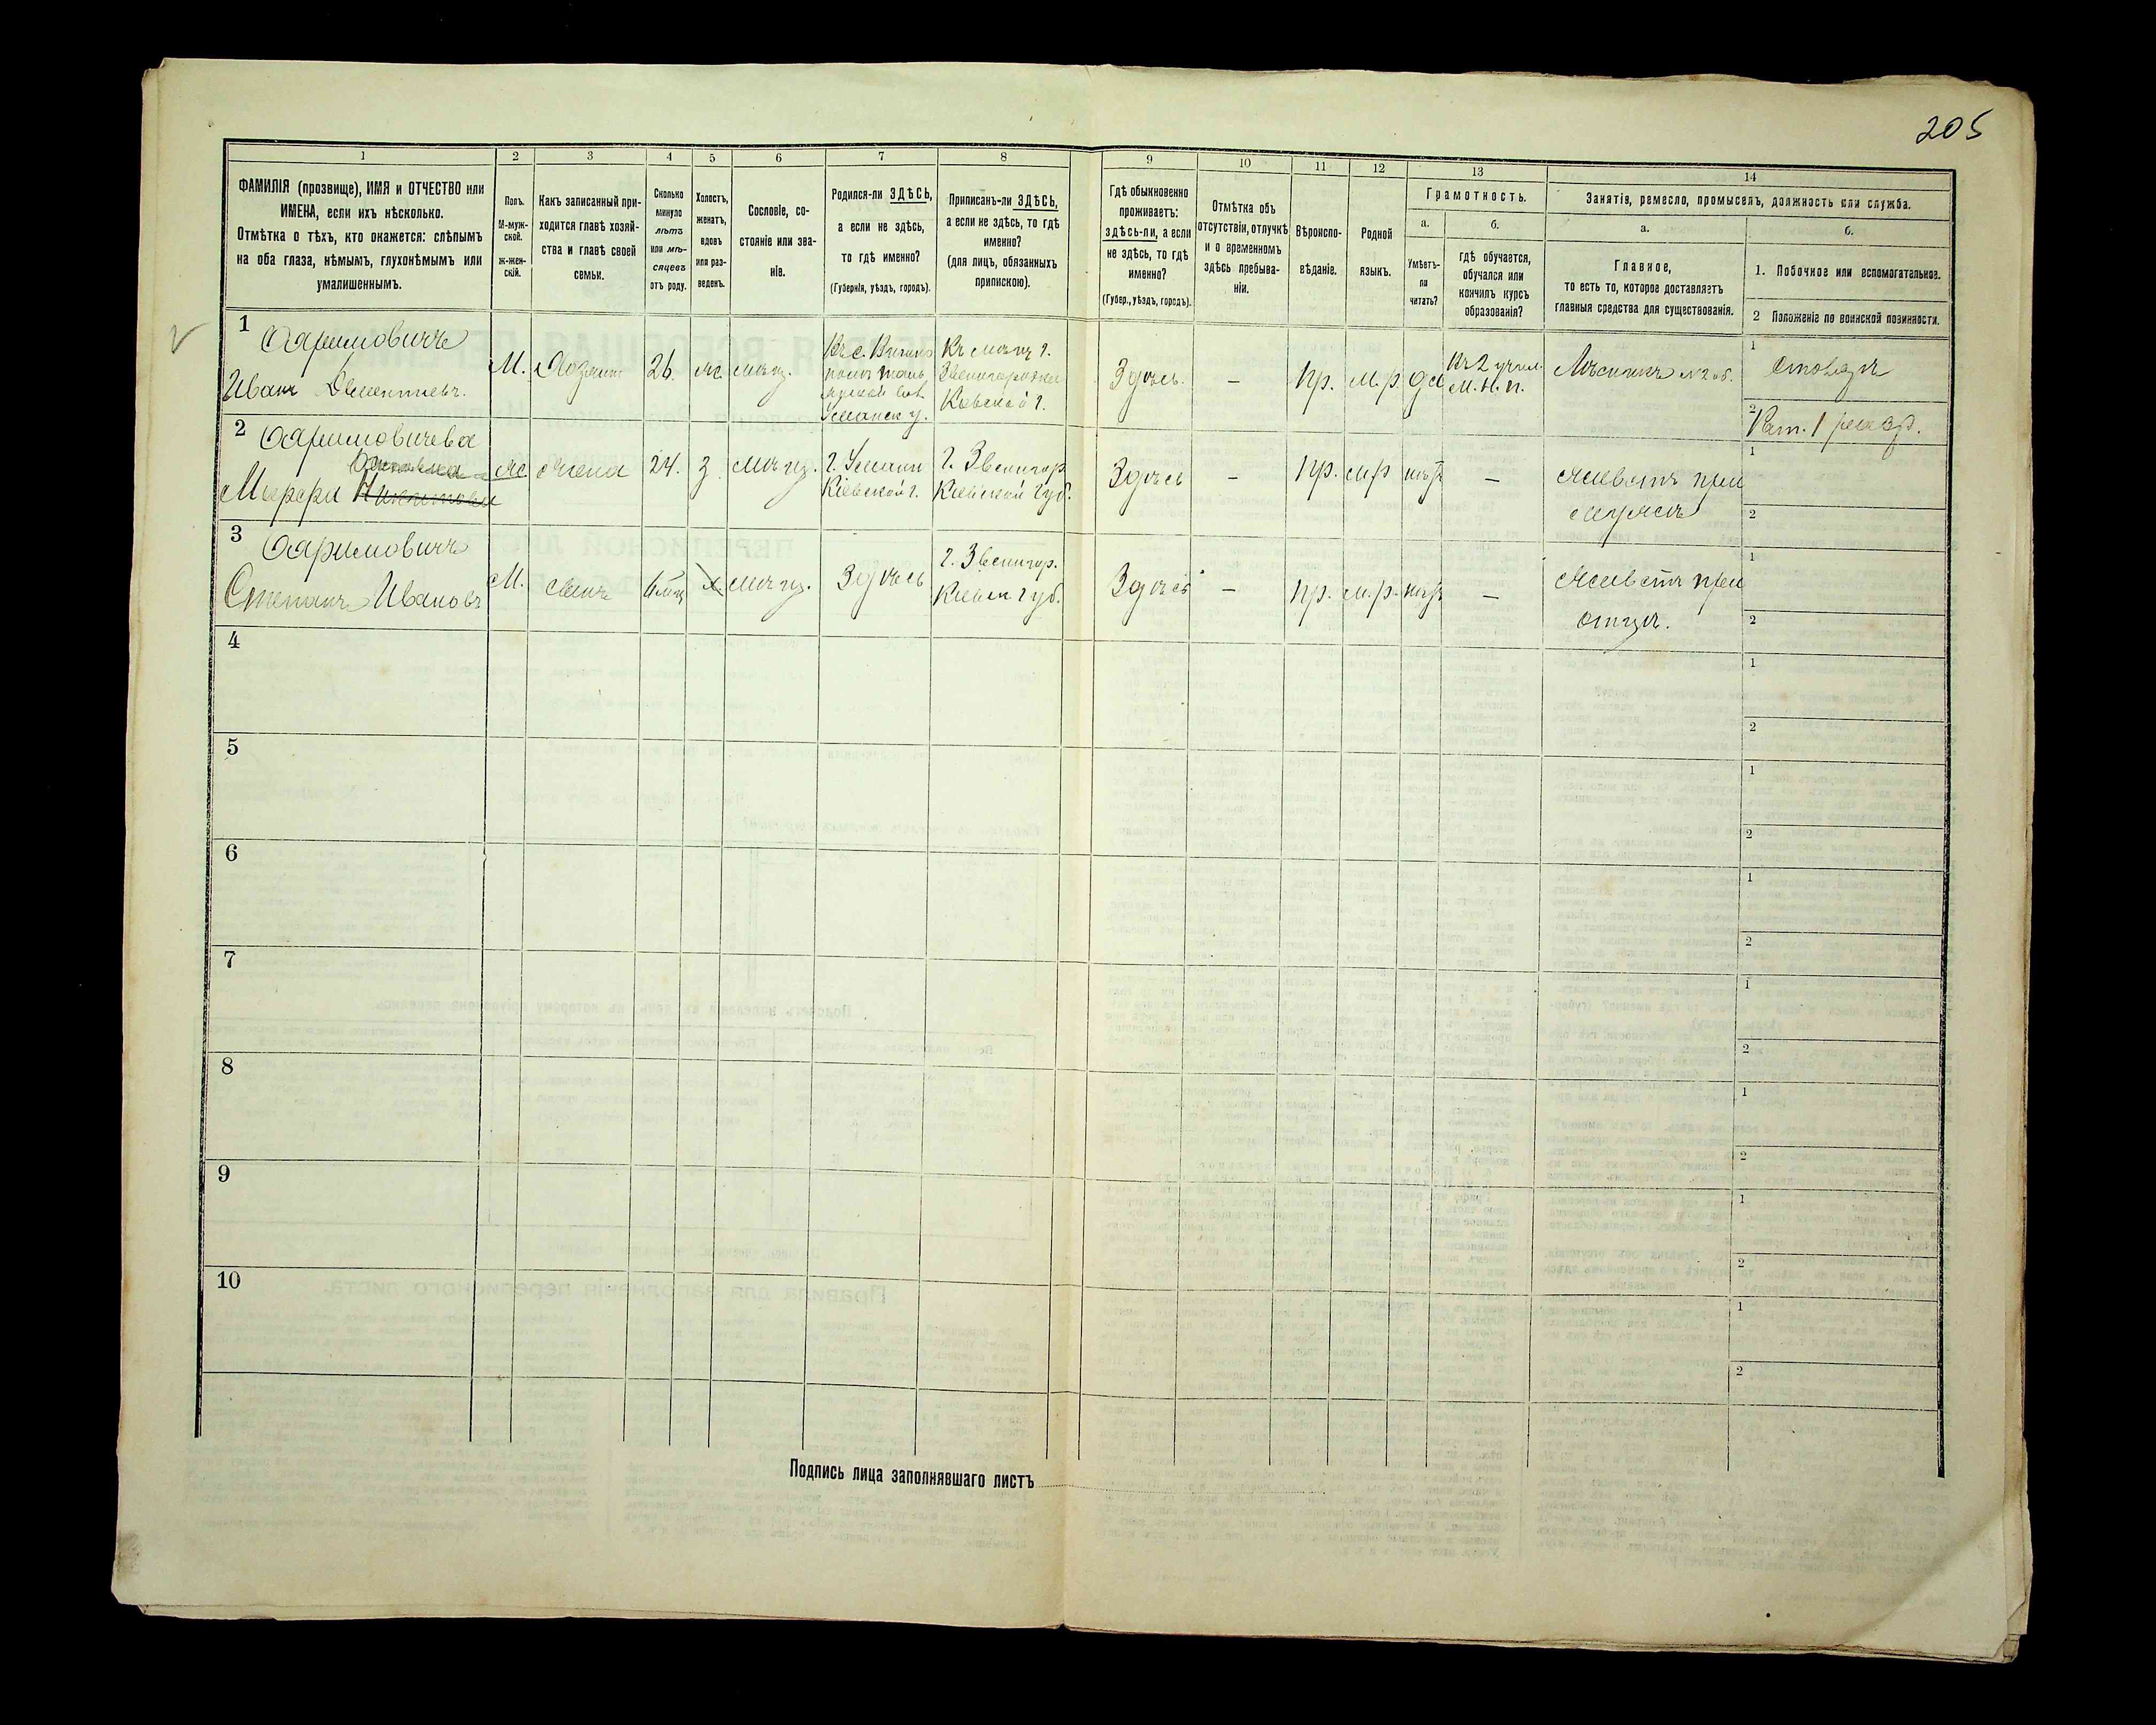 205
1
2
3
4
5
6
7
8
9
10
11
12
13
14
ФАМИЛІЯ (прозвище), ИМЯ и ОТЧЕСТВО или
ИМЕНА, если ихъ нѣсколько.
Отмѣтка о тѣхъ, кто окажется: слѣпымъ
на оба глаза, нѣмымъ, глухонѣмымъ или
умалишеннымъ.
Полъ.
М-муж-
ской.
ж-жен-
скій.
Какъ записанный при-
ходится главѣ хозяй-
ства и главѣ своей
семьи.
Сколько
минуло
лѣтъ
или мѣ-
сяцевъ
отъ роду.
Холостъ,
женатъ,
вдовъ
или раз-
веденъ.
Сословіе, со-
стояніе или зва-
ніе.
Родился-ли ЗДѢСЬ,
а если не здѣсь,
то гдѣ именно?
(Губернія, уѣздъ, городъ).
Приписанъ-ли ЗДѢСЬ,
а если не здѣсь, то гдѣ
именно?
(для лицъ, обязанныхъ
припискою).
Гдѣ обыкновенно
проживаетъ:
здѣсь-ли, а если
не здѣсь, то гдѣ
именно?
(Губер., уѣздъ, городъ).
Отмѣтка объ
отсутствіи, отлучкѣ
и о временномъ
здѣсь пребыва-
ніи.
Вѣроиспо-
вѣданіе.
Родной
языкъ.
Грамотность.
а.
Умѣетъ-
ли
читать?
б.
гдѣ обучается,
обучался или
кончилъ курсъ
образованія?
Занятія, ремесло, промыселъ, должность или служба.
а.
Главное,
то есть то, которое доставляетъ
главныя средства для существованія.
б.
1. Побочное или вспомогательное.
2 Положеніе по воинской повинности.
1
Иванъ Дементьевъ.
М.
Хозяинъ
26.
ж.
мѣщ.
Уманск у.
Къ мѣщ г.
Кіевской г.
Здѣсь.
–
пр.
м.р
да
Въ 2 учил.
М. Н. П.
1
Столяръ
2
Рат. 1 разр.
2
ж
жена
24.
з.
мѣщ.
г. Умани
Кіевской г.
г. Звенигор
Кіевской губ.
Здѣсь
–
пр.
м.р
нѣтъ
–
живетъ при
мужѣ
1
2
3
Степанъ Ивановъ
М.
сынъ
х.
мѣщ.
Здѣсь
г. Звенигор.
Кіевск губ.
Здѣсь
–
пр.
м.р.
нѣтъ
–
живетъ при
отцѣ.
1
2
4
1
2
5
1
2
6
1
2
7
1
2
8
1
2
9
1
2
10
1
2
Подпись лица заполнявшаго листъ